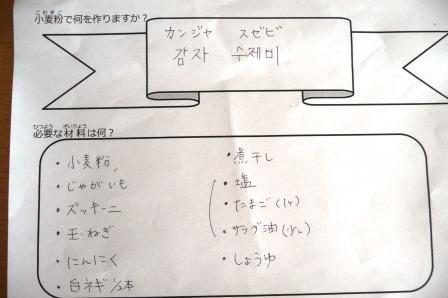 小麦粉で何を作りますか？
カンジャ スゼビ
감자 수제비
必要な材料は何？
・小麦粉
・じゃがいも
・ズッキーニ
・玉ねぎ
・にんにく
・白ネギ 1/2本
・煮干し
・塩
・たまご(1ヶ)
・サラダ油(少し)
・しょうゆ